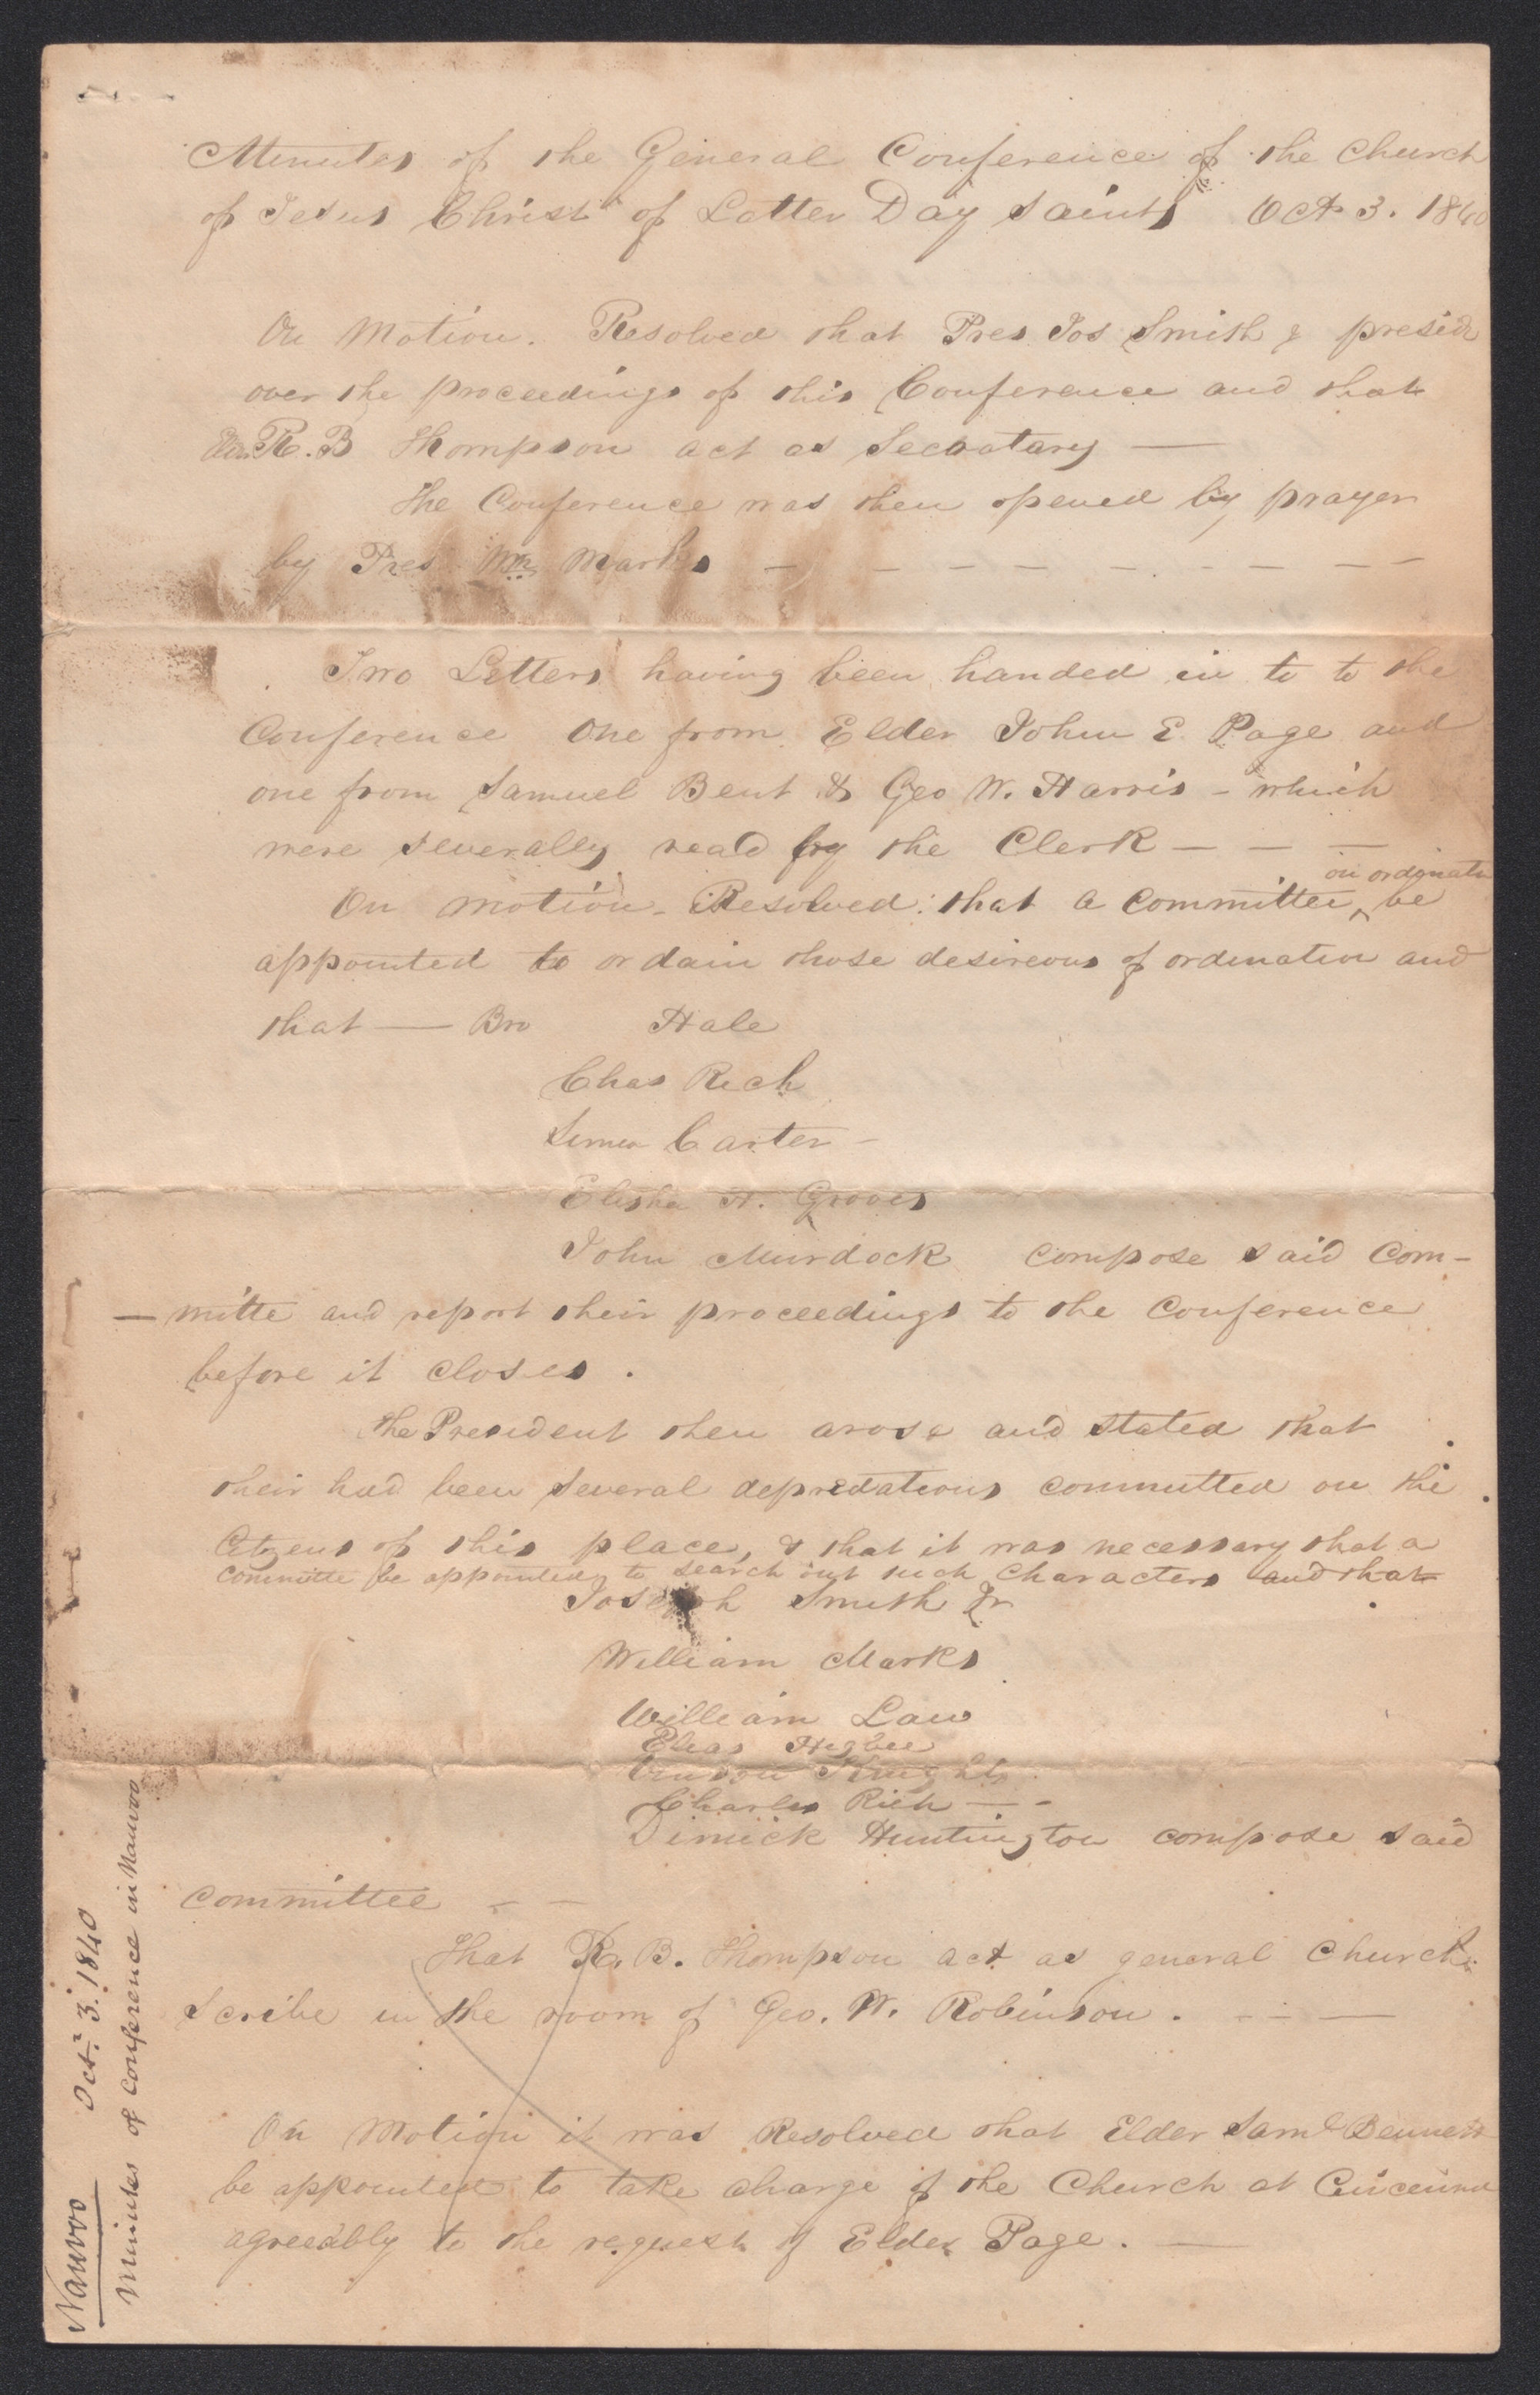 Minutes of the General Conference of the Church
of Jesus Christ of Latter Day Saints Oct 3. 1840
On Motion. Resolved that Pres Jos Smith & preside
over the proceedings of this Conference and that
Elder R. B Thompson act as Secratary —
The Conference was then opened by prayer
by Pres Wm Marks — — — — — — — — —
Two Letters having been handed in to to the
Conference One from Elder John E. Page and
one from Samuel Bent & Geo W. Harris - which
were severally read by the Clerk — — —
on ordinatn
On motion - Resolved that a Committee ^ be
appointed to ordain those desireous of ordination and
that — Bro Hale
Chas Rich
Simeo Carter -
Elisha H. Groves
John Murdock compose said Com-
- mitte and report their proceedings to the Conference
before it closes.
The President then arose and stated that
their had been several depredations committed on the
Citzens of this place, & that it was necessary that a
committe be appointed, to search out such characters and that
Joseph Smith Jr
William Marks
William Law
Elias Higbee
Vinson Knight
Charles Rich — -
Dimick Huntington compose said
committee - —
That R. B. Thompson act as general Church
Scribe in the room of Geo. W. Robinson. - - —
On Motion it was Resolved that Elder Saml Bennett
be appointed to take charge of the Church at Cincinna
agreeably to the request of Elder Page. —
Nauvoo Oct. 3. 1840
Minutes of Conference in Nauvoo